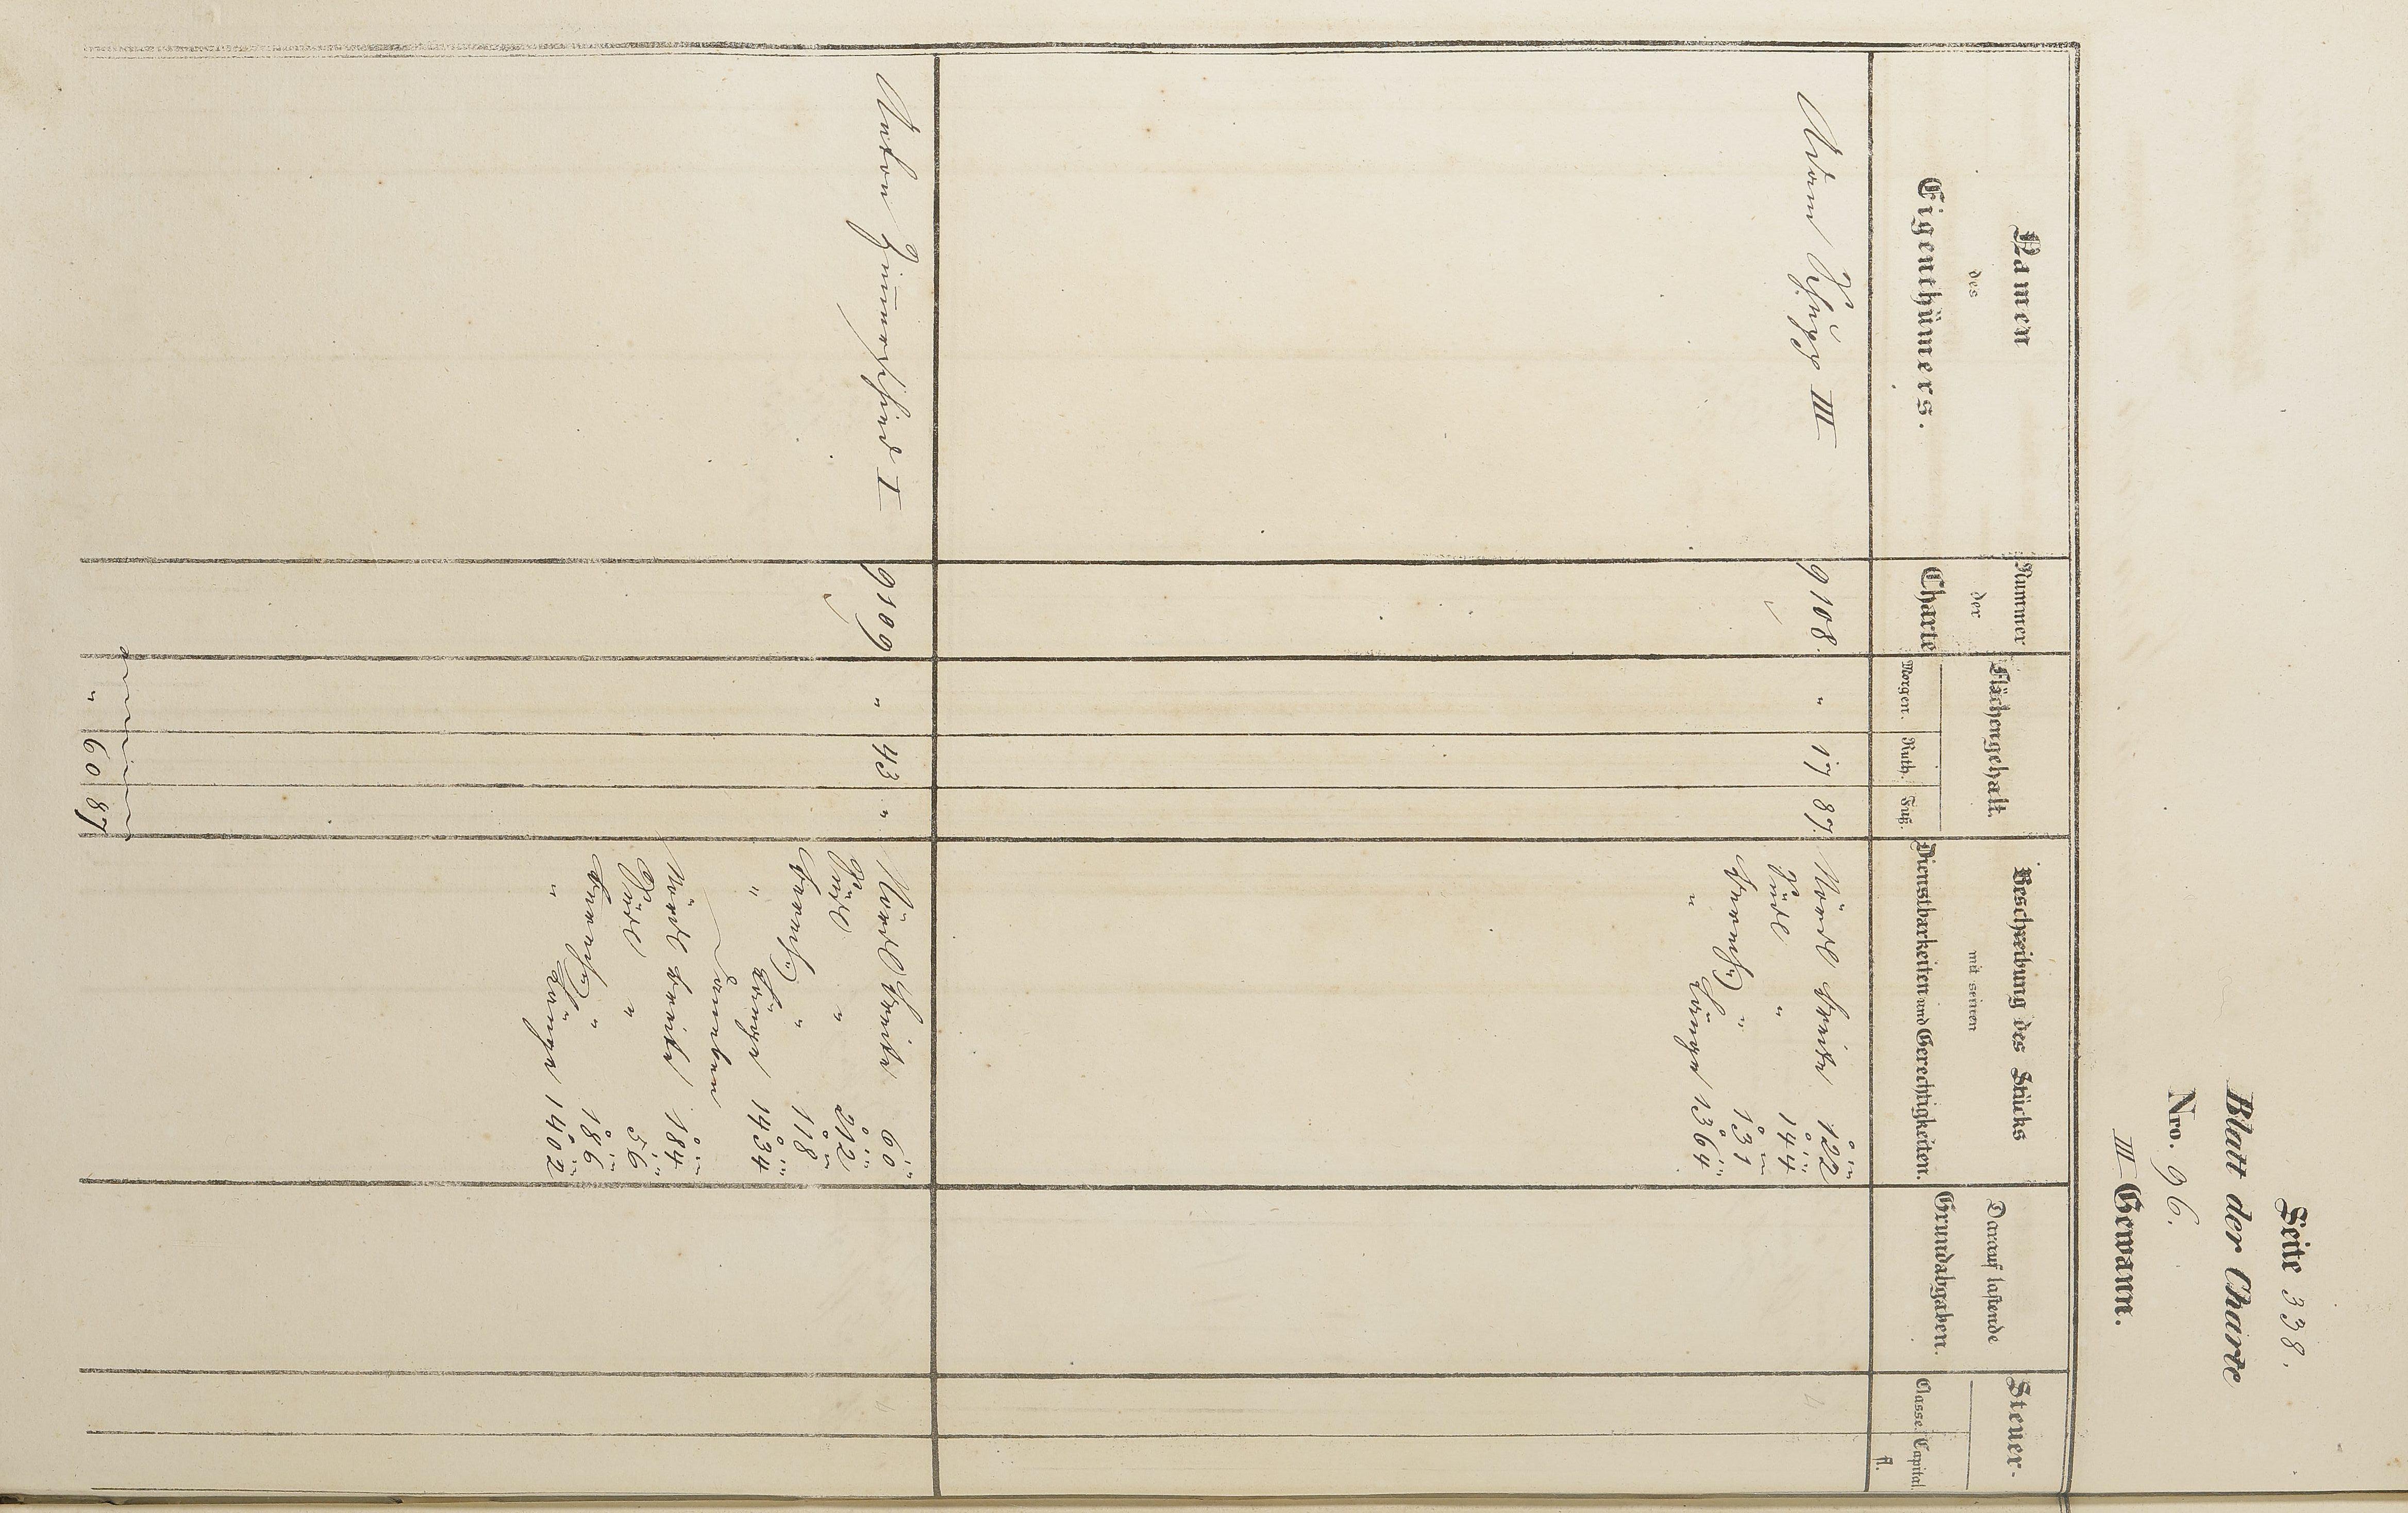 Seite 338.
Blatt der Charte
Nro. 96.
III Gewann.
Namen
des
Eigenthümers.
Nummer
der
Charte
Flächengehalt.
Morgen. Ruth. Fuß.
Beschreibung des Stücks
mit seinen
Dienstbarkeiten und Gerechtigkeiten.
Darauf lastende
Grundabgaben.
Steuer-
Classe. Capital
fl.
Adam III 9108. " 17 87. Nördl Breite 122
Südl " 144
Senkr " 131
" Länge 1364
Anton Zimmerschied I 9109 " 43 " Nördl Breite 60
Südl " 212
" 118
" Länge 1434
daneben
Nördl Breite 184
Südl " 56
" 186
" Länge 1402
" 60 87